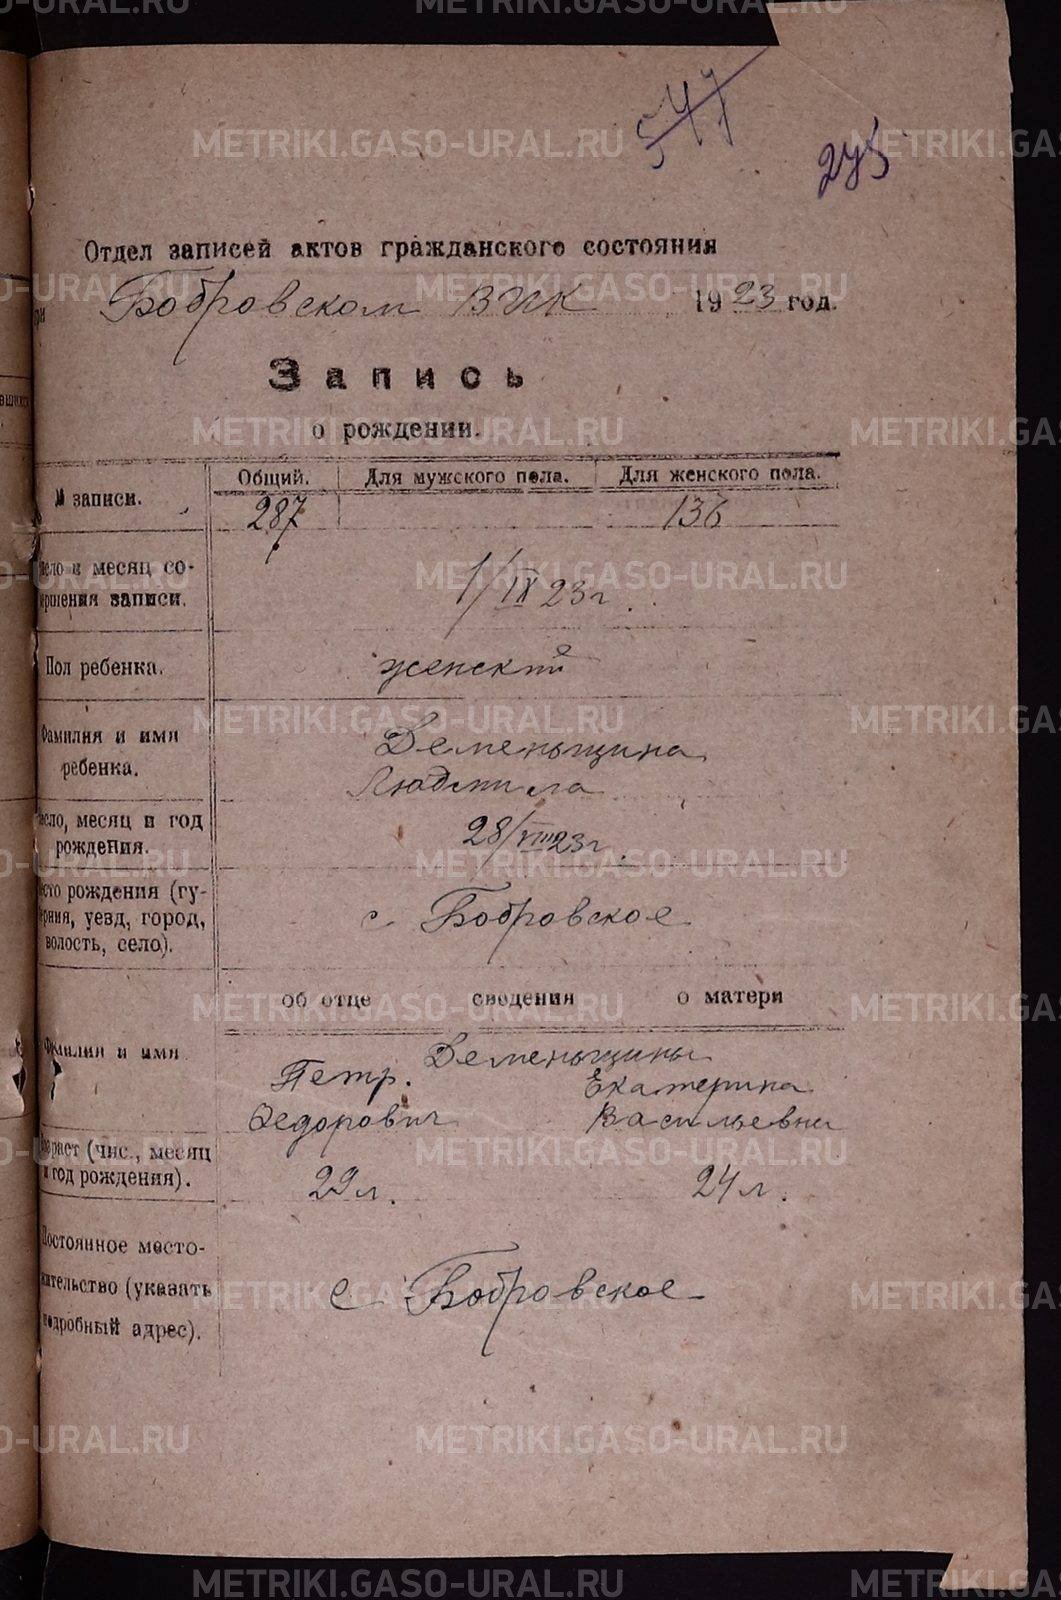 547
275
Отдел записей актов гражданского состояния
Бобровском ВИК 1923 год.
Запись
о рождении.
№ записи.
Общий. Для мужского пола. Для женского пола.
287 136
число и месяц со-
вершения записи.
1/IX 23 г.
Пол ребенка.
женский
Фамилия и имя
ребенка.
Деменьщина
Людмила
число, месяц и год
рождения.
28/VIII 23 г.
место рождения (гу-
берния, уезд, город,
волость, село).
с. Бобровское
об отце сведения о матери
Фамилия и имя
Деменьщины
Петр. Екатерина
Федорович Васильевна
возраст (чис., месяц
и год рождения).
29 л. 24 л.
Постоянное место-
жительство (указать
подробный адрес).
с Бобровское
METRIKI.GASO-URAL.RU